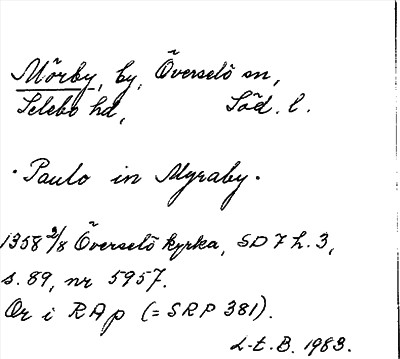 Mörby, by, Överselö sn,
Selebo hd, Söd. l.
·Paulo in Myraby·
1358 2/8 Överselö kyrka, SD 7 h. 3,
s. 89, nr 5957.
Or i RAp (= SRP 381).
L-t. B. 1983.